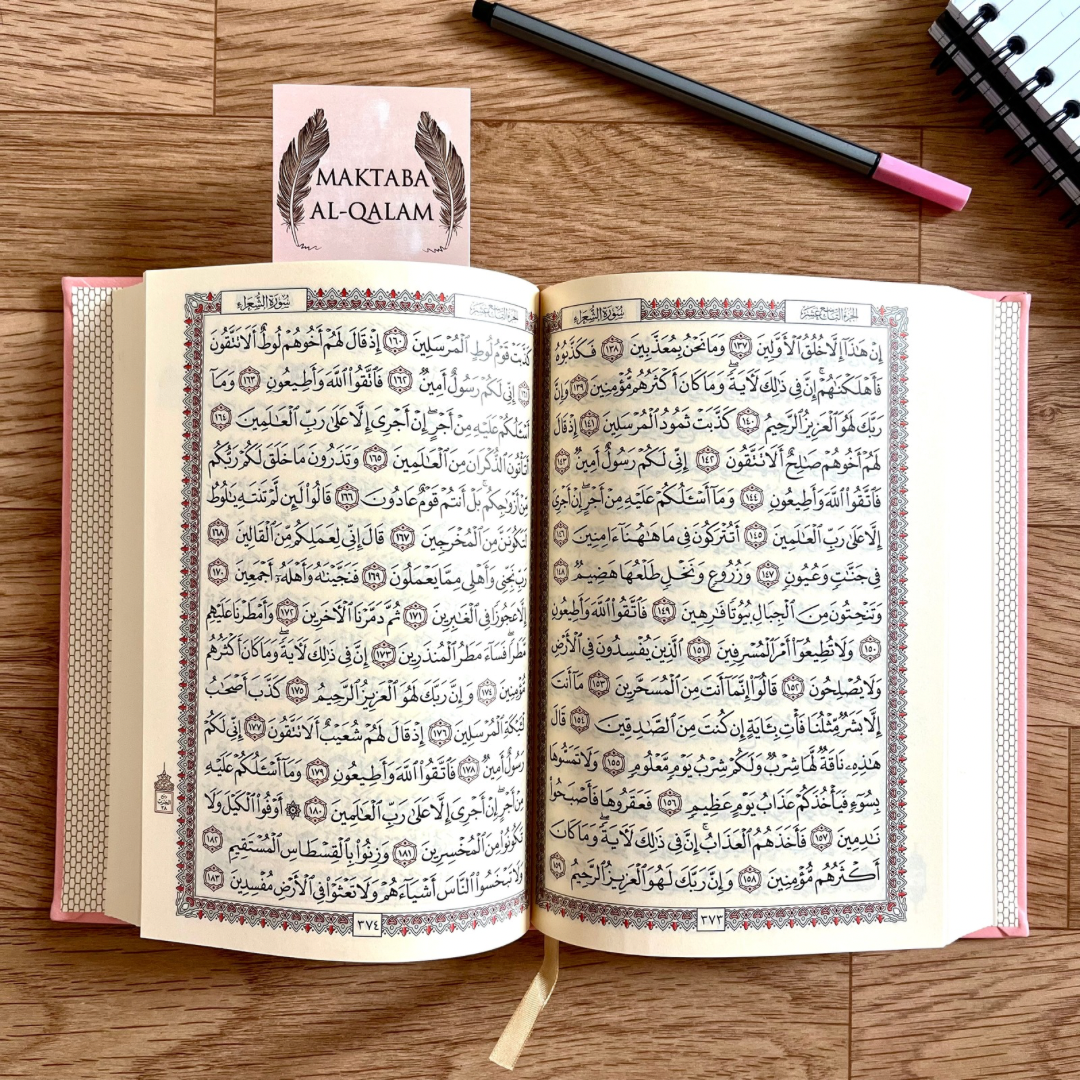 MAKTABA
AL-QALAM
سُورَةُ الشُّعَرَاءِ
الجُزْءُ التَّاسِعَ عَشَرَ
إِنۡ هَٰذَآ إِلَّا خُلُقُ ٱلۡأَوَّلِينَ ١٣٧ وَمَا نَحۡنُ بِمُعَذَّبِينَ ١٣٨ فَكَذَّبُوهُ
فَأَهۡلَكۡنَٰهُمۡۚ إِنَّ فِي ذَٰلِكَ لَأٓيَةٗۖ وَمَا كَانَ أَكۡثَرُهُم مُّؤۡمِنِينَ ١٣٩ وَإِنَّ
رَبَّكَ لَهُوَ ٱلۡعَزِيزُ ٱلرَّحِيمُ ١٤٠ كَذَّبَتۡ ثَمُودُ ٱلۡمُرۡسَلِينَ ١٤١ إِذۡ قَالَ
لَهُمۡ أَخُوهُمۡ صَٰلِحٌ أَلَا تَتَّقُونَ ١٤٢ إِنِّي لَكُمۡ رَسُولٌ أَمِينٞ ١٤٣
فَٱتَّقُواْ ٱللَّهَ وَأَطِيعُونِ ١٤٤ وَمَآ أَسۡـَٔلُكُمۡ عَلَيۡهِ مِنۡ أَجۡرٍۖ إِنۡ أَجۡرِيَ
إِلَّا عَلَىٰ رَبِّ ٱلۡعَٰلَمِينَ ١٤٥ أَتُتۡرَكُونَ فِي مَا هَٰهُنَآ ءَامِنِينَ ١٤٦
فِي جَنَّٰتٖ وَعُيُونٖ ١٤٧ وَزُرُوعٖ وَنَخۡلٖ طَلۡعُهَا هَضِيمٞ ١٤٨
وَتَنۡحِتُونَ مِنَ ٱلۡجِبَالِ بُيُوتٗا فَٰرِهِينَ ١٤٩ فَٱتَّقُواْ ٱللَّهَ وَأَطِيعُونِ
١٥٠ وَلَا تُطِيعُوٓاْ أَمۡرَ ٱلۡمُسۡرِفِينَ ١٥١ ٱلَّذِينَ يُفۡسِدُونَ فِي ٱلۡأَرۡضِ
وَلَا يُصۡلِحُونَ ١٥٢ قَالُوٓاْ إِنَّمَآ أَنتَ مِنَ ٱلۡمُسَحَّرِينَ ١٥٣ مَآ أَنتَ
إِلَّا بَشَرٞ مِّثۡلُنَا فَأۡتِ بِـَٔايَةٍ إِن كُنتَ مِنَ ٱلصَّٰدِقِينَ ١٥٤ قَالَ
هَٰذِهِۦ نَاقَةٞ لَّهَا شِرۡبٞ وَلَكُمۡ شِرۡبُ يَوۡمٖ مَّعۡلُومٖ ١٥٥ وَلَا تَمَسُّوهَا
بِسُوٓءٖ فَيَأۡخُذَكُمۡ عَذَابُ يَوۡمٍ عَظِيمٖ ١٥٦ فَعَقَرُوهَا فَأَصۡبَحُواْ
نَٰدِمِينَ ١٥٧ فَأَخَذَهُمُ ٱلۡعَذَابُۚ إِنَّ فِي ذَٰلِكَ لَأٓيَةٗۖ وَمَا كَانَ
أَكۡثَرُهُم مُّؤۡمِنِينَ ١٥٨ وَإِنَّ رَبَّكَ لَهُوَ ٱلۡعَزِيزُ ٱلرَّحِيمُ ١٥٩
٣٧٣
الجُزْءُ التَّاسِعَ عَشَرَ
سُورَةُ الشُّعَرَاءِ
كَذَّبَتۡ قَوۡمُ لُوطٍ ٱلۡمُرۡسَلِينَ ١٦٠ إِذۡ قَالَ لَهُمۡ أَخُوهُمۡ لُوطٌ أَلَا تَتَّقُونَ
١٦١ إِنِّي لَكُمۡ رَسُولٌ أَمِينٞ ١٦٢ فَٱتَّقُواْ ٱللَّهَ وَأَطِيعُونِ ١٦٣ وَمَآ
أَسۡـَٔلُكُمۡ عَلَيۡهِ مِنۡ أَجۡرٍۖ إِنۡ أَجۡرِيَ إِلَّا عَلَىٰ رَبِّ ٱلۡعَٰلَمِينَ ١٦٤
أَتَأۡتُونَ ٱلذُّكۡرَانَ مِنَ ٱلۡعَٰلَمِينَ ١٦٥ وَتَذَرُونَ مَا خَلَقَ لَكُمۡ رَبُّكُم
مِّنۡ أَزۡوَٰجِكُمۚ بَلۡ أَنتُمۡ قَوۡمٌ عَادُونَ ١٦٦ قَالُواْ لَئِن لَّمۡ تَنتَهِ يَٰلُوطُ
لَتَكُونَنَّ مِنَ ٱلۡمُخۡرَجِينَ ١٦٧ قَالَ إِنِّي لِعَمَلِكُم مِّنَ ٱلۡقَالِينَ ١٦٨
رَبِّ نَجِّنِي وَأَهۡلِي مِمَّا يَعۡمَلُونَ ١٦٩ فَنَجَّيۡنَٰهُ وَأَهۡلَهُۥٓ أَجۡمَعِينَ ١٧٠
إِلَّا عَجُوزٗا فِي ٱلۡغَٰبِرِينَ ١٧١ ثُمَّ دَمَّرۡنَا ٱلۡأٓخَرِينَ ١٧٢ وَأَمۡطَرۡنَا عَلَيۡهِم
مَّطَرٗاۖ فَسَآءَ مَطَرُ ٱلۡمُنذَرِينَ ١٧٣ إِنَّ فِي ذَٰلِكَ لَأٓيَةٗۖ وَمَا كَانَ أَكۡثَرُهُم
مُّؤۡمِنِينَ ١٧٤ وَإِنَّ رَبَّكَ لَهُوَ ٱلۡعَزِيزُ ٱلرَّحِيمُ ١٧٥ كَذَّبَ أَصۡحَٰبُ
لۡـَٔيۡكَةِ ٱلۡمُرۡسَلِينَ ١٧٦ إِذۡ قَالَ لَهُمۡ شُعَيۡبٌ أَلَا تَتَّقُونَ ١٧٧ إِنِّي لَكُمۡ
رَسُولٌ أَمِينٞ ١٧٨ فَٱتَّقُواْ ٱللَّهَ وَأَطِيعُونِ ١٧٩ وَمَآ أَسۡـَٔلُكُمۡ عَلَيۡهِ
مِنۡ أَجۡرٍۖ إِنۡ أَجۡرِيَ إِلَّا عَلَىٰ رَبِّ ٱلۡعَٰلَمِينَ ١٨٠ ۞ أَوۡفُواْ ٱلۡكَيۡلَ وَلَا
تَكُونُواْ مِنَ ٱلۡمُخۡسِرِينَ ١٨١ وَزِنُواْ بِٱلۡقِسۡطَاسِ ٱلۡمُسۡتَقِيمِ ١٨٢
وَلَا تَبۡخَسُواْ ٱلنَّاسَ أَشۡيَآءَهُمۡ وَلَا تَعۡثَوۡاْ فِي ٱلۡأَرۡضِ مُفۡسِدِينَ ١٨٣
٣٧٤